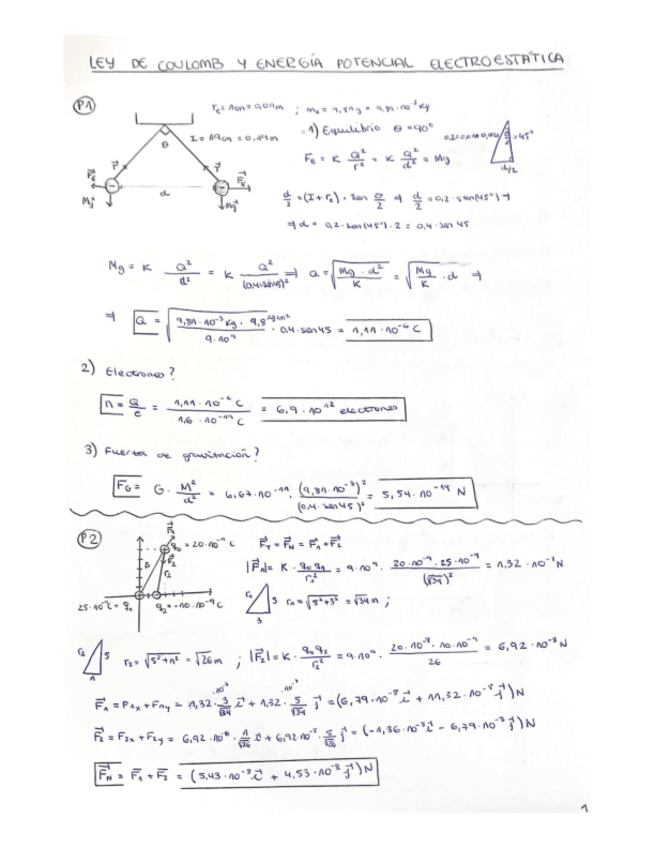 LEY DE COULOMB Y ENERGÍA POTENCIAL ELECTROESTÁTICA
P1
rₑ = 1cm = 0,01m ; mₑ = 9,81g = 9,81·10⁻³ Kg
l = 19cm = 0,19m
θ
1) Equilibrio θ = 90°
Fᴇ = K Q²/r² = K Q²/d² = Mg
= 45°
d/2
d
Mg Mg
d/2 = (l + rₑ) · sen θ/2 ⇒ d/2 = 0,2 · sen(45°) ⇒
⇒ d = 0,2 · sen(45°) · 2 = 0,4 · sen 45
Mg = K Q²/d² = K Q²/(0,4·sen45)² ⇒ Q = √(Mg · d²/K) = √(Mg/K) · d ⇒
⇒ Q = √(9,81·10⁻³ Kg · 9,8 /9·10⁹) · 0,4·sen45 = 1,11·10⁻⁶ C
2) Electrones?
n = Q/e = 1,11·10⁻⁶ C/1,6·10⁻¹⁹ C = 6,9·10¹² electrones
3) Fuerza de gravitación?
F_G = G · M²/d² = 6,67·10⁻¹¹ · (9,81·10⁻³)²/(0,4·sen45)² = 5,54·10⁻¹⁴ N
P2
q₀ = 20·10⁻⁹ C
F⃗_T = F⃗_N = F⃗₁ + F⃗₂
|F⃗₁| = K · q₀q₁/r₁² = 9·10⁹ · 20·10⁻⁹·25·10⁻⁹/(√34)² = 1,32·10⁻⁷ N
25·10⁻⁹C = q₁
q₂ = -10·10⁻⁹ C
r₁ 5 3 r₁ = √(5²+3²) = √34 m ;
r₂ 5 1 r₂ = √(5²+1²) = √26 m ; |F⃗₂| = K · q₀q₂/r₂² = 9·10⁹ · 20·10⁻⁹·10·10⁻⁹/26 = 6,92·10⁻⁸ N
F⃗₁ = F₁x + F₁y = 1,32·10⁻⁷·3/√34 i⃗ + 1,32·10⁻⁷·5/√34 j⃗ = (6,79·10⁻⁸ i⃗ + 11,32·10⁻⁸ j⃗) N
F⃗₂ = F₂x + F₂y = 6,92·10⁻⁸·1/√26 i⃗ + 6,92·10⁻⁸·5/√26 j⃗ = (-1,36·10⁻⁸ i⃗ - 6,79·10⁻⁸ j⃗) N
F⃗_N = F⃗₁ + F⃗₂ = (5,43·10⁻⁸ i⃗ + 4,53·10⁻⁸ j⃗) N
1